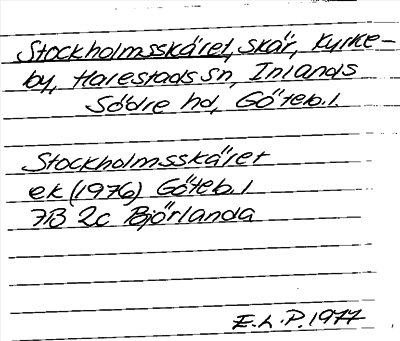 Stockholmsskäret, skär, Kyrke-
by, Harestads sn, Inlands
Södre hd, Göteb. l.
Stockholmsskäret
ek (1976) Göteb. l
7B 2c Björlanda
E.L.P. 1977